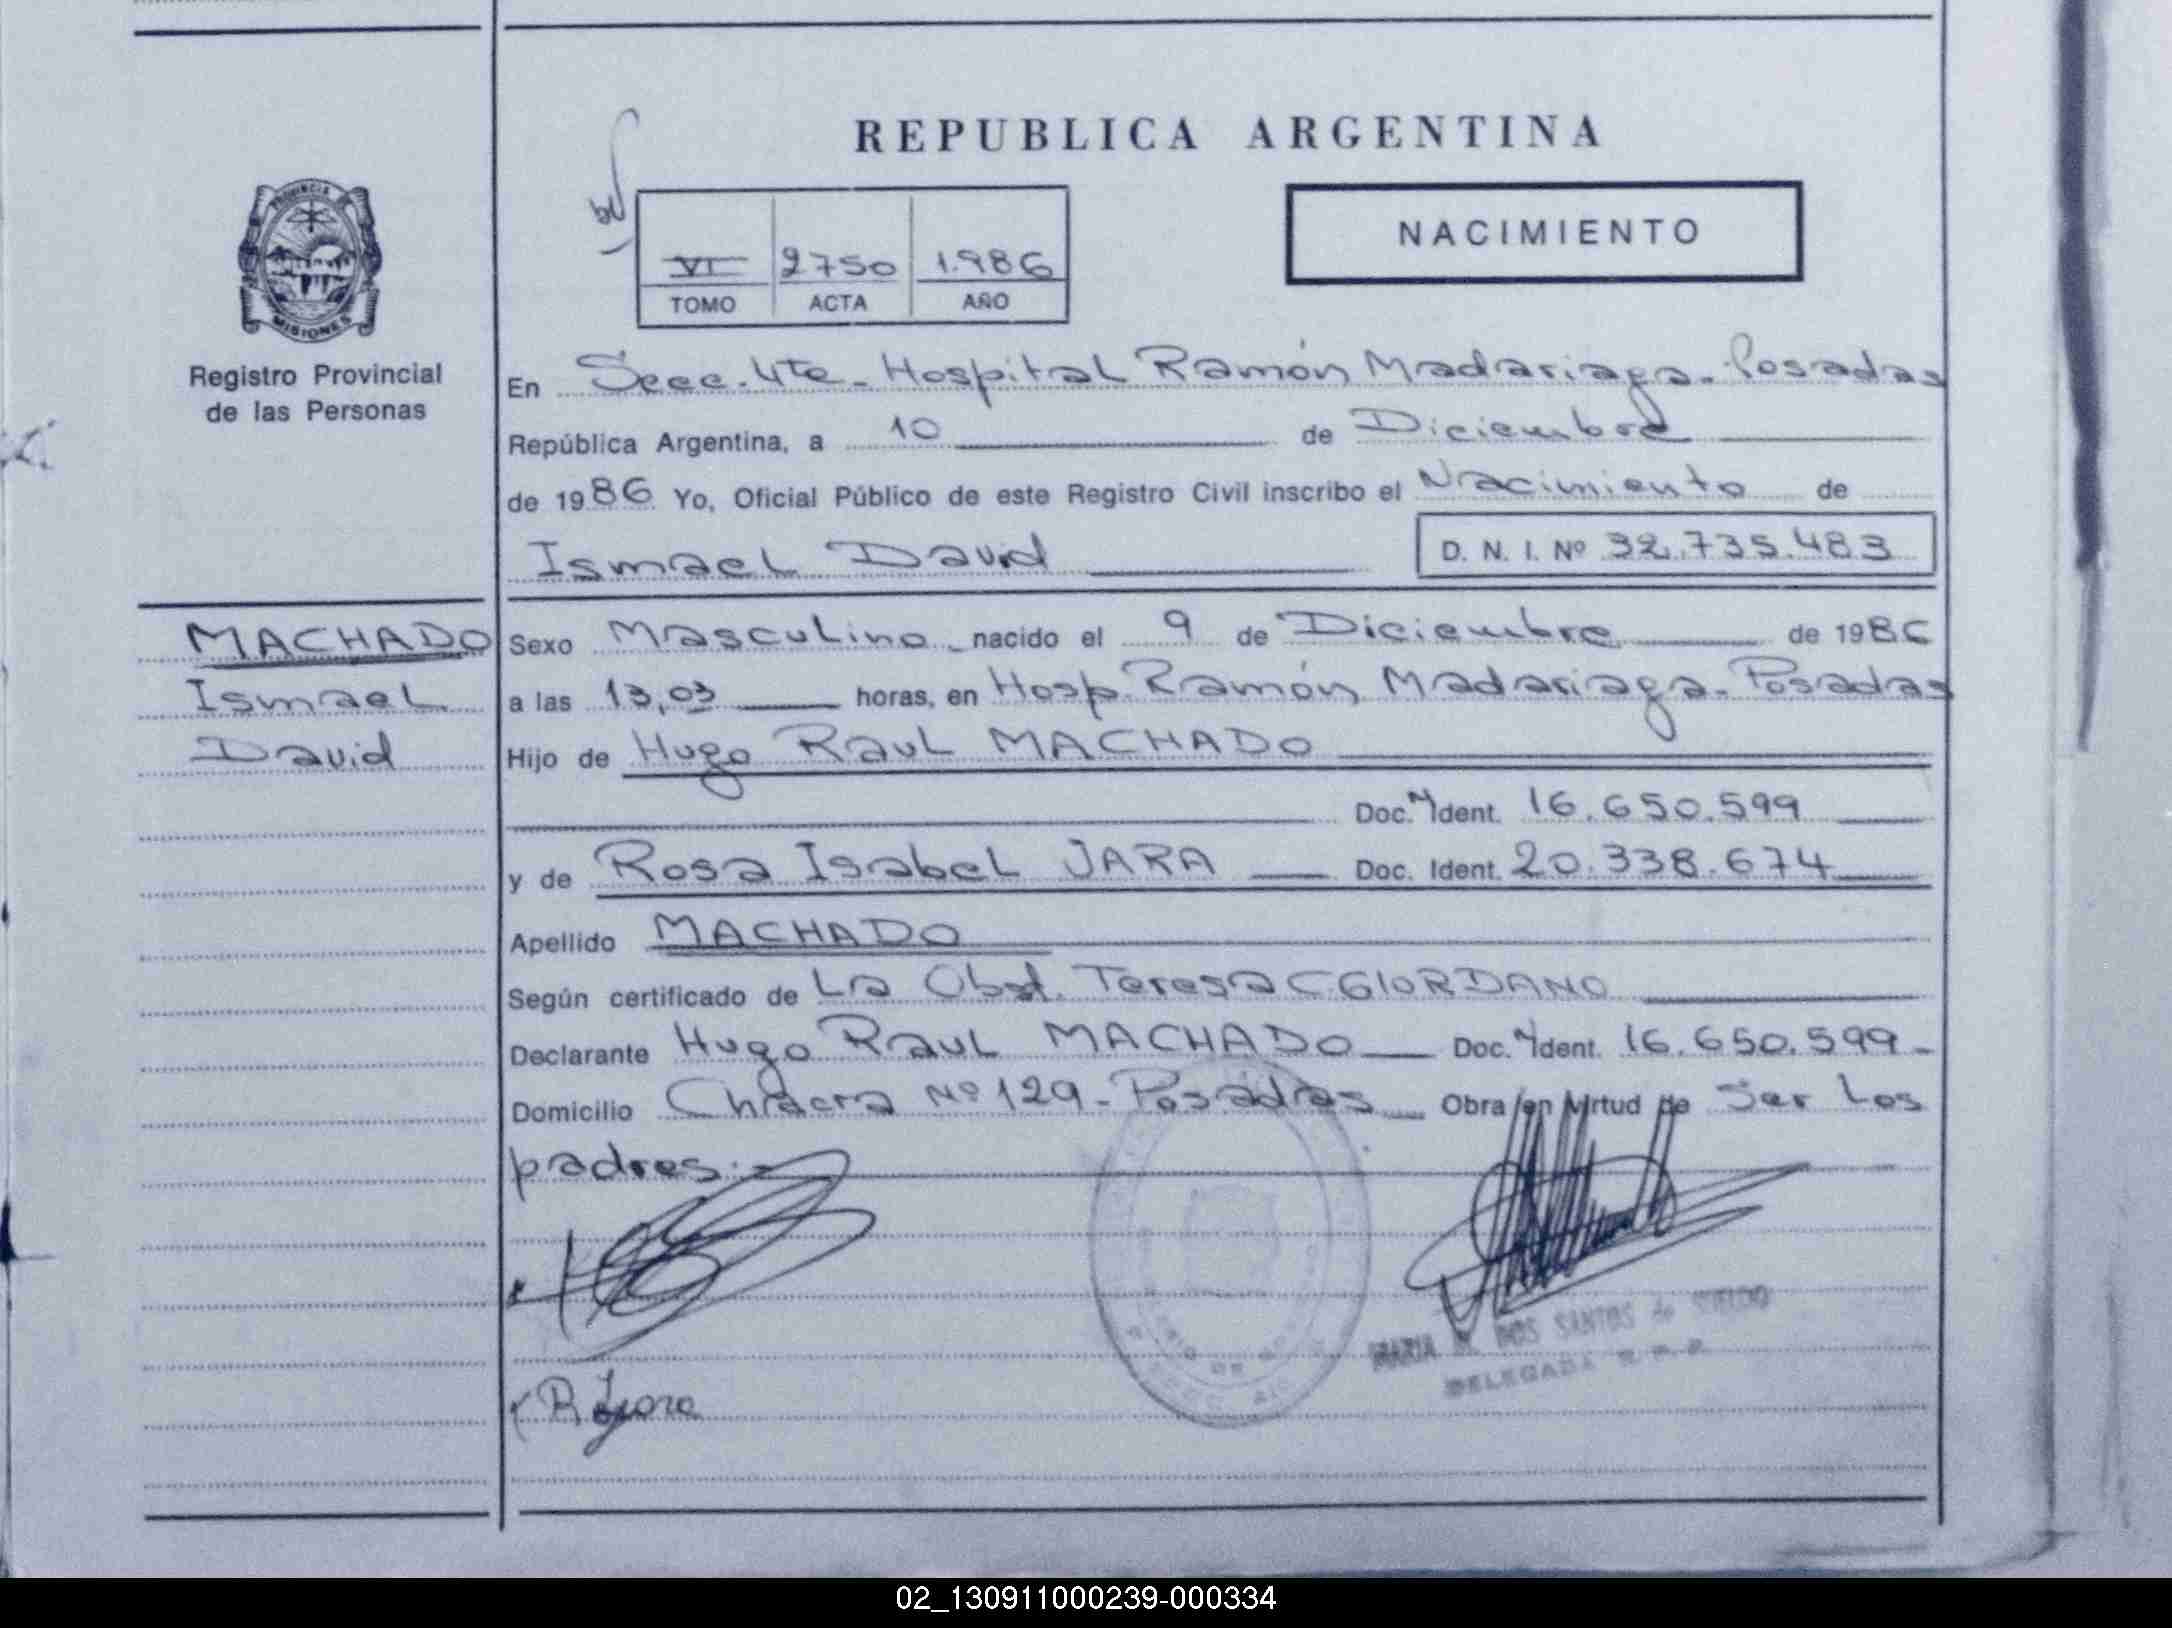 REPUBLICA ARGENTINA
NACIMIENTO
VI 2750 1.986
TOMO ACTA AÑO
PROVINCIA DE
MISIONES
Registro Provincial
de las Personas
En Secc. 4te. Hospital Ramón Madariaga. Posadas
República Argentina, a 10 de Diciembre
de 1986 Yo, Oficial Público de este Registro Civil inscribo el Nacimiento de
Ismael David D. N. I. Nº 32.735.483
MACHADO
Ismael
David
Sexo Masculino nacido el 9 de Diciembre de 1986
a las 13,03 horas, en Hosp. Ramón Madariaga. Posadas
Hijo de Hugo Raul MACHADO
Doc. Ident. 16.650.599
y de Rosa Isabel JARA Doc. Ident. 20.338.674
Apellido MACHADO
Según certificado de La Obst. Teresa C. GIORDANO
Declarante Hugo Raul MACHADO Doc. Ident. 16.650.599
Domicilio Chacra Nº 129 - Posadas Obra en virtud de Ser Los
padres.
MARIA DOS SANTOS de
DELEGADA R. P. P.
R. Jara
02_130911000239-000334